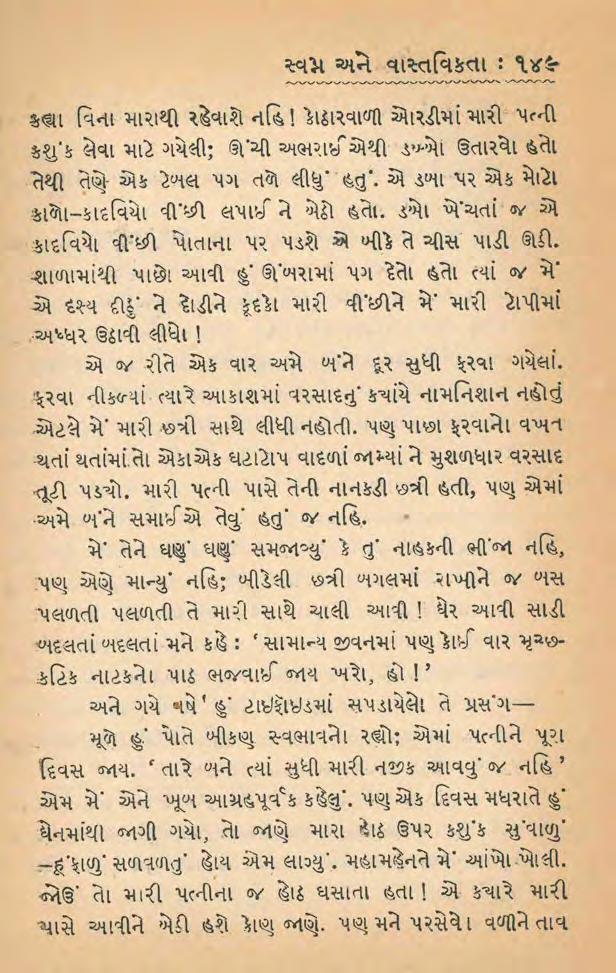 સ્વપ્ન અને વાસ્તવિકતા : ૧૪૯
કહ્યા વિના મારાથી રહેવાશે નહિ! કોઠારવાળી ઓરડીમાં મારી પત્ની
કશુંક લેવા માટે ગયેલી; ઊંચી અભરાઈ એથી ડબ્બો ઉતારવો હતો
તેથી તેણે એક ટેબલ પગ તળે લીધું હતું. એ ડબા પર એક મોટો
કાળો-કાદવિયો વીંછી લપાઈ ને બેઠો હતો. ડબો ખેંચતાં જ એ
કાદવિયો વીંછી પોતાના પર પડશે એ બીકે તે ચીસ પાડી ઊઠી.
શાળામાંથી પાછો આવી હું ઊંબરામાં પગ દેતો હતો ત્યાં જ મેં
એ દૃશ્ય દીઠું ને દોડીને કૂદકો મારી વીંછીને મેં મારી ટોપીમાં
અધ્ધર ઉઠાવી લીધો !
એ જ રીતે એક વાર અમે બંને દૂર સુધી ફરવા ગયેલાં.
ફરવા નીકળ્યાં ત્યારે આકાશમાં વરસાદનું ક્યાંયે નામનિશાન નહોતું
એટલે મેં મારી છત્રી સાથે લીધી નહોતી. પણ પાછા ફરવાનો વખત
થતાં થતાંમાં તો એકાએક ઘટાટોપ વાદળાં જામ્યાં ને મુશળધાર વરસાદ
તૂટી પડ્યો. મારી પત્ની પાસે તેની નાનકડી છત્રી હતી, પણ એમાં
અમે બંને સમાઈએ તેવું હતું જ નહિ.
મેં તેને ઘણું ઘણું સમજાવ્યું કે તું નાહકની ભીંજા નહિ,
પણ એણે માન્યું નહિ; બીડેલી છત્રી બગલમાં રાખીને જ બસ
પલળતી પલળતી તે મારી સાથે ચાલી આવી ! ઘેર આવી સાડી
બદલતાં બદલતાં મને કહે : ‘સામાન્ય જીવનમાં પણ કોઈ વાર મૃચ્છ-
કટિક નાટકનો પાઠ ભજવાઈ જાય ખરો, હો !’
અને ગયે વર્ષે હું ટાઇફૉઇડમાં સપડાયેલો તે પ્રસંગ—
મૂળે હું પોતે બીકણ સ્વભાવનો રહ્યો; એમાં પત્નીને પૂરા
દિવસ જાય. ‘તારે બને ત્યાં સુધી મારી નજીક આવવું જ નહિ’
એમ મેં એને ખૂબ આગ્રહપૂર્વક કહેલું. પણ એક દિવસ મધરાતે હું
ઘેનમાંથી જાગી ગયો, તો જાણે મારા હોઠ ઉપર કશુંક સુંવાળું
—હૂંફાળું સળવળતું હોય એમ લાગ્યું. મહામહેનતે મેં આંખો ખોલી.
જોઉં તો મારી પત્નીના જ હોઠ ઘસાતા હતા ! એ ક્યારે મારી
પાસે આવીને બેઠી હશે કોણ જાણે. પણ મને પરસેવો વળીને તાવ